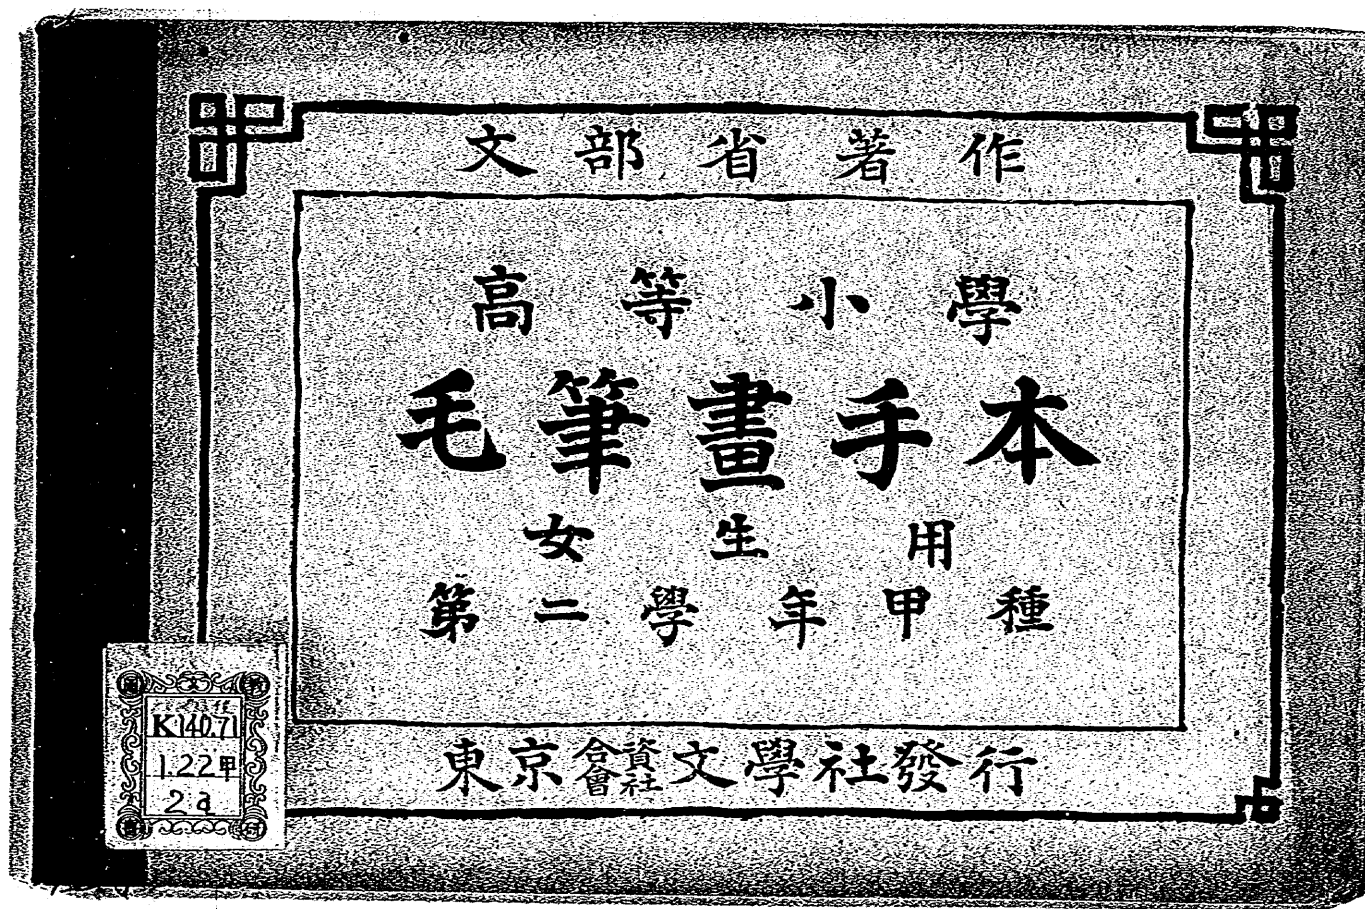 文部省著作
高等小學
毛筆畫手本
女生用
第二學年甲種
東京合資會社文學社發行
K140.71
1.22甲
2a